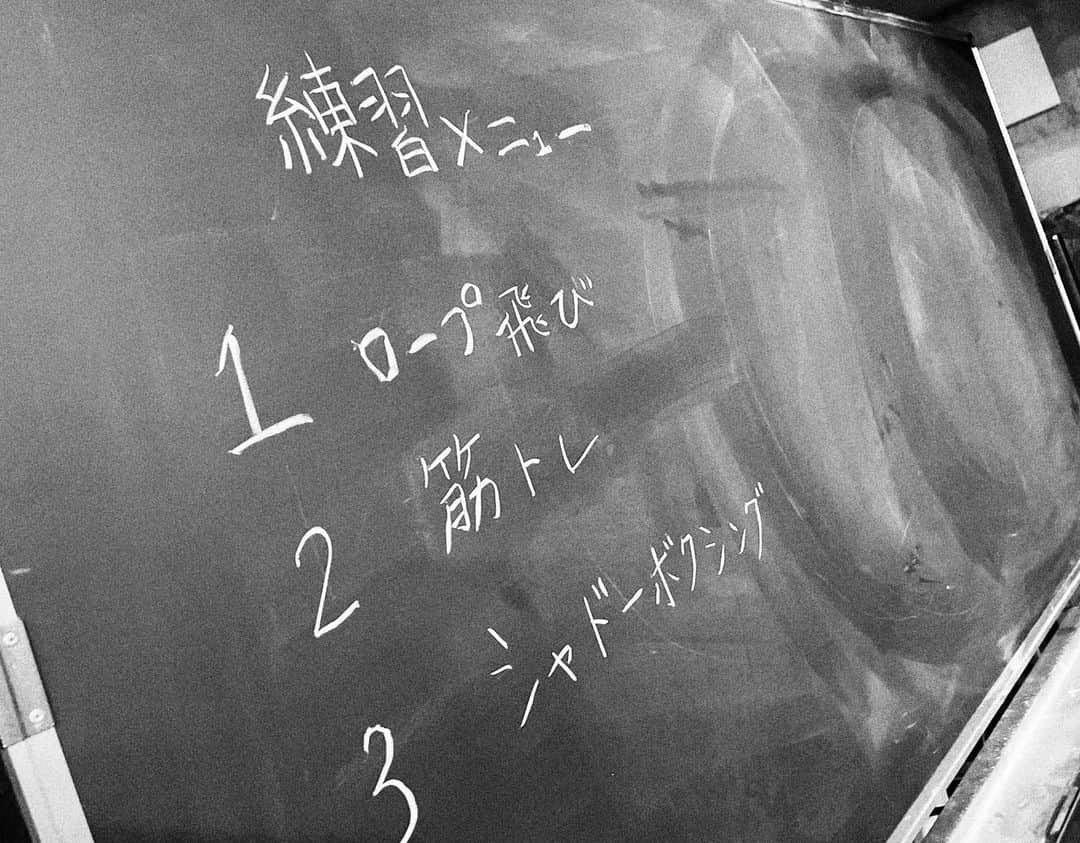 練習メニュー
1 ロープ飛び
2 筋トレ
3 シャドーボクシング